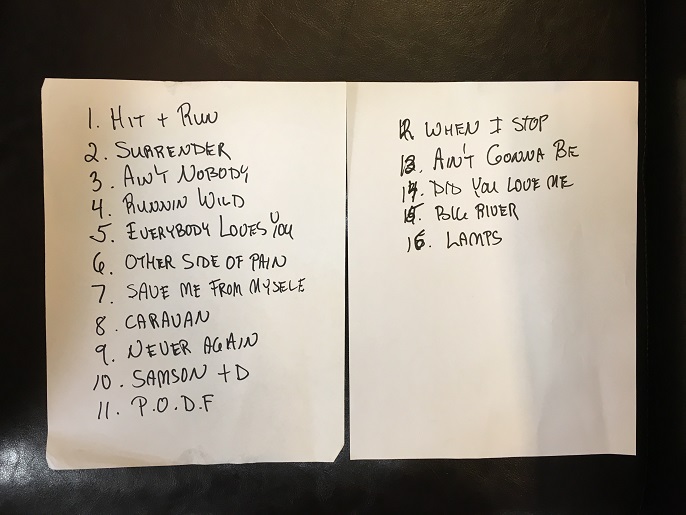 1. HIT + RUN
2. SURRENDER
3. AIN'T NOBODY
4. RUNNIN WILD
5. EVERYBODY LOVES YOU
6. OTHER SIDE OF PAIN
7. SAVE ME FROM MYSELF
8. CARAVAN
9. NEVER AGAIN
10. SAMSON + D
11. P.O.D.F
12. WHEN I STOP
13. AIN'T GONNA BE
14. DID YOU LOVE ME
15. BIG RIVER
16. LAMPS